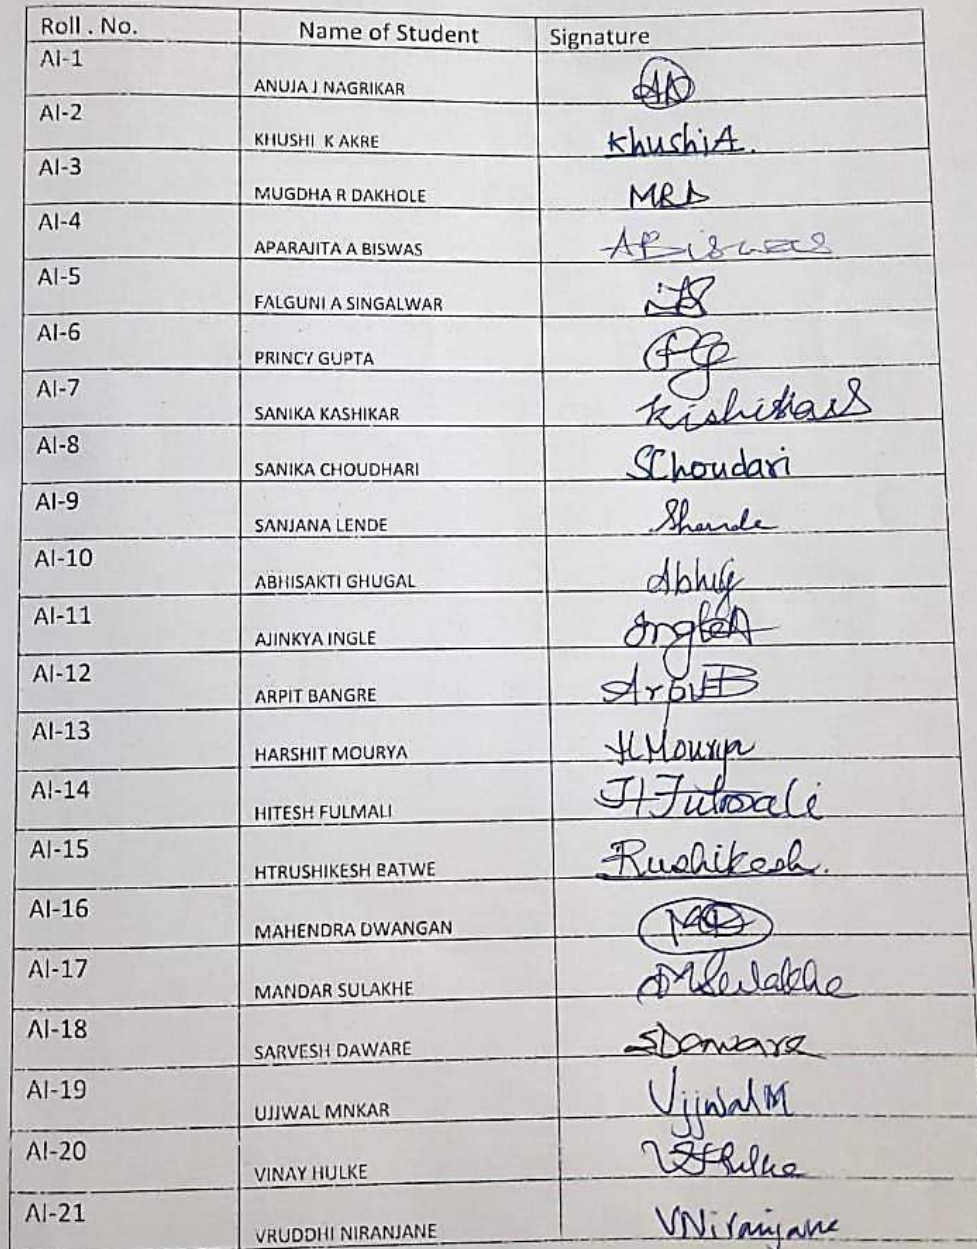 Roll . No. Name of Student Signature
AI-1 ANUJA J NAGRIKAR
AI-2 KHUSHI K AKRE KhushiA.
AI-3 MUGDHA R DAKHOLE MRD
AI-4 APARAJITA A BISWAS ABiswas
AI-5 FALGUNI A SINGALWAR
AI-6 PRINCY GUPTA Pg
AI-7 SANIKA KASHIKAR
AI-8 SANIKA CHOUDHARI SChoudari
AI-9 SANJANA LENDE
AI-10 ABHISAKTI GHUGAL AbhiG
AI-11 AJINKYA INGLE IngleA
AI-12 ARPIT BANGRE ArpitB
AI-13 HARSHIT MOURYA HMourya
AI-14 HITESH FULMALI H Fulmali
AI-15 HTRUSHIKESH BATWE Rushikesh.
AI-16 MAHENDRA DWANGAN
AI-17 MANDAR SULAKHE MSulakhe
AI-18 SARVESH DAWARE SDaware
AI-19 UJJWAL MNKAR UjjwalM
AI-20 VINAY HULKE VHulke
AI-21 VRUDDHI NIRANJANE VNiranjane